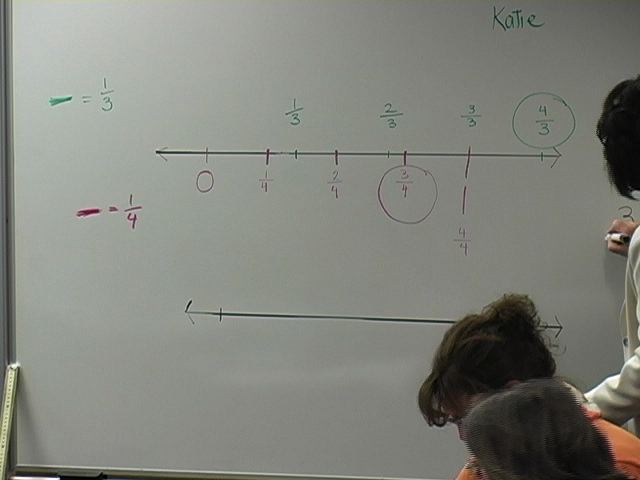 Katie
= 1/3
1/3 2/3 3/3 4/3
0 1/4 2/4 3/4
= 1/4
4/4
2